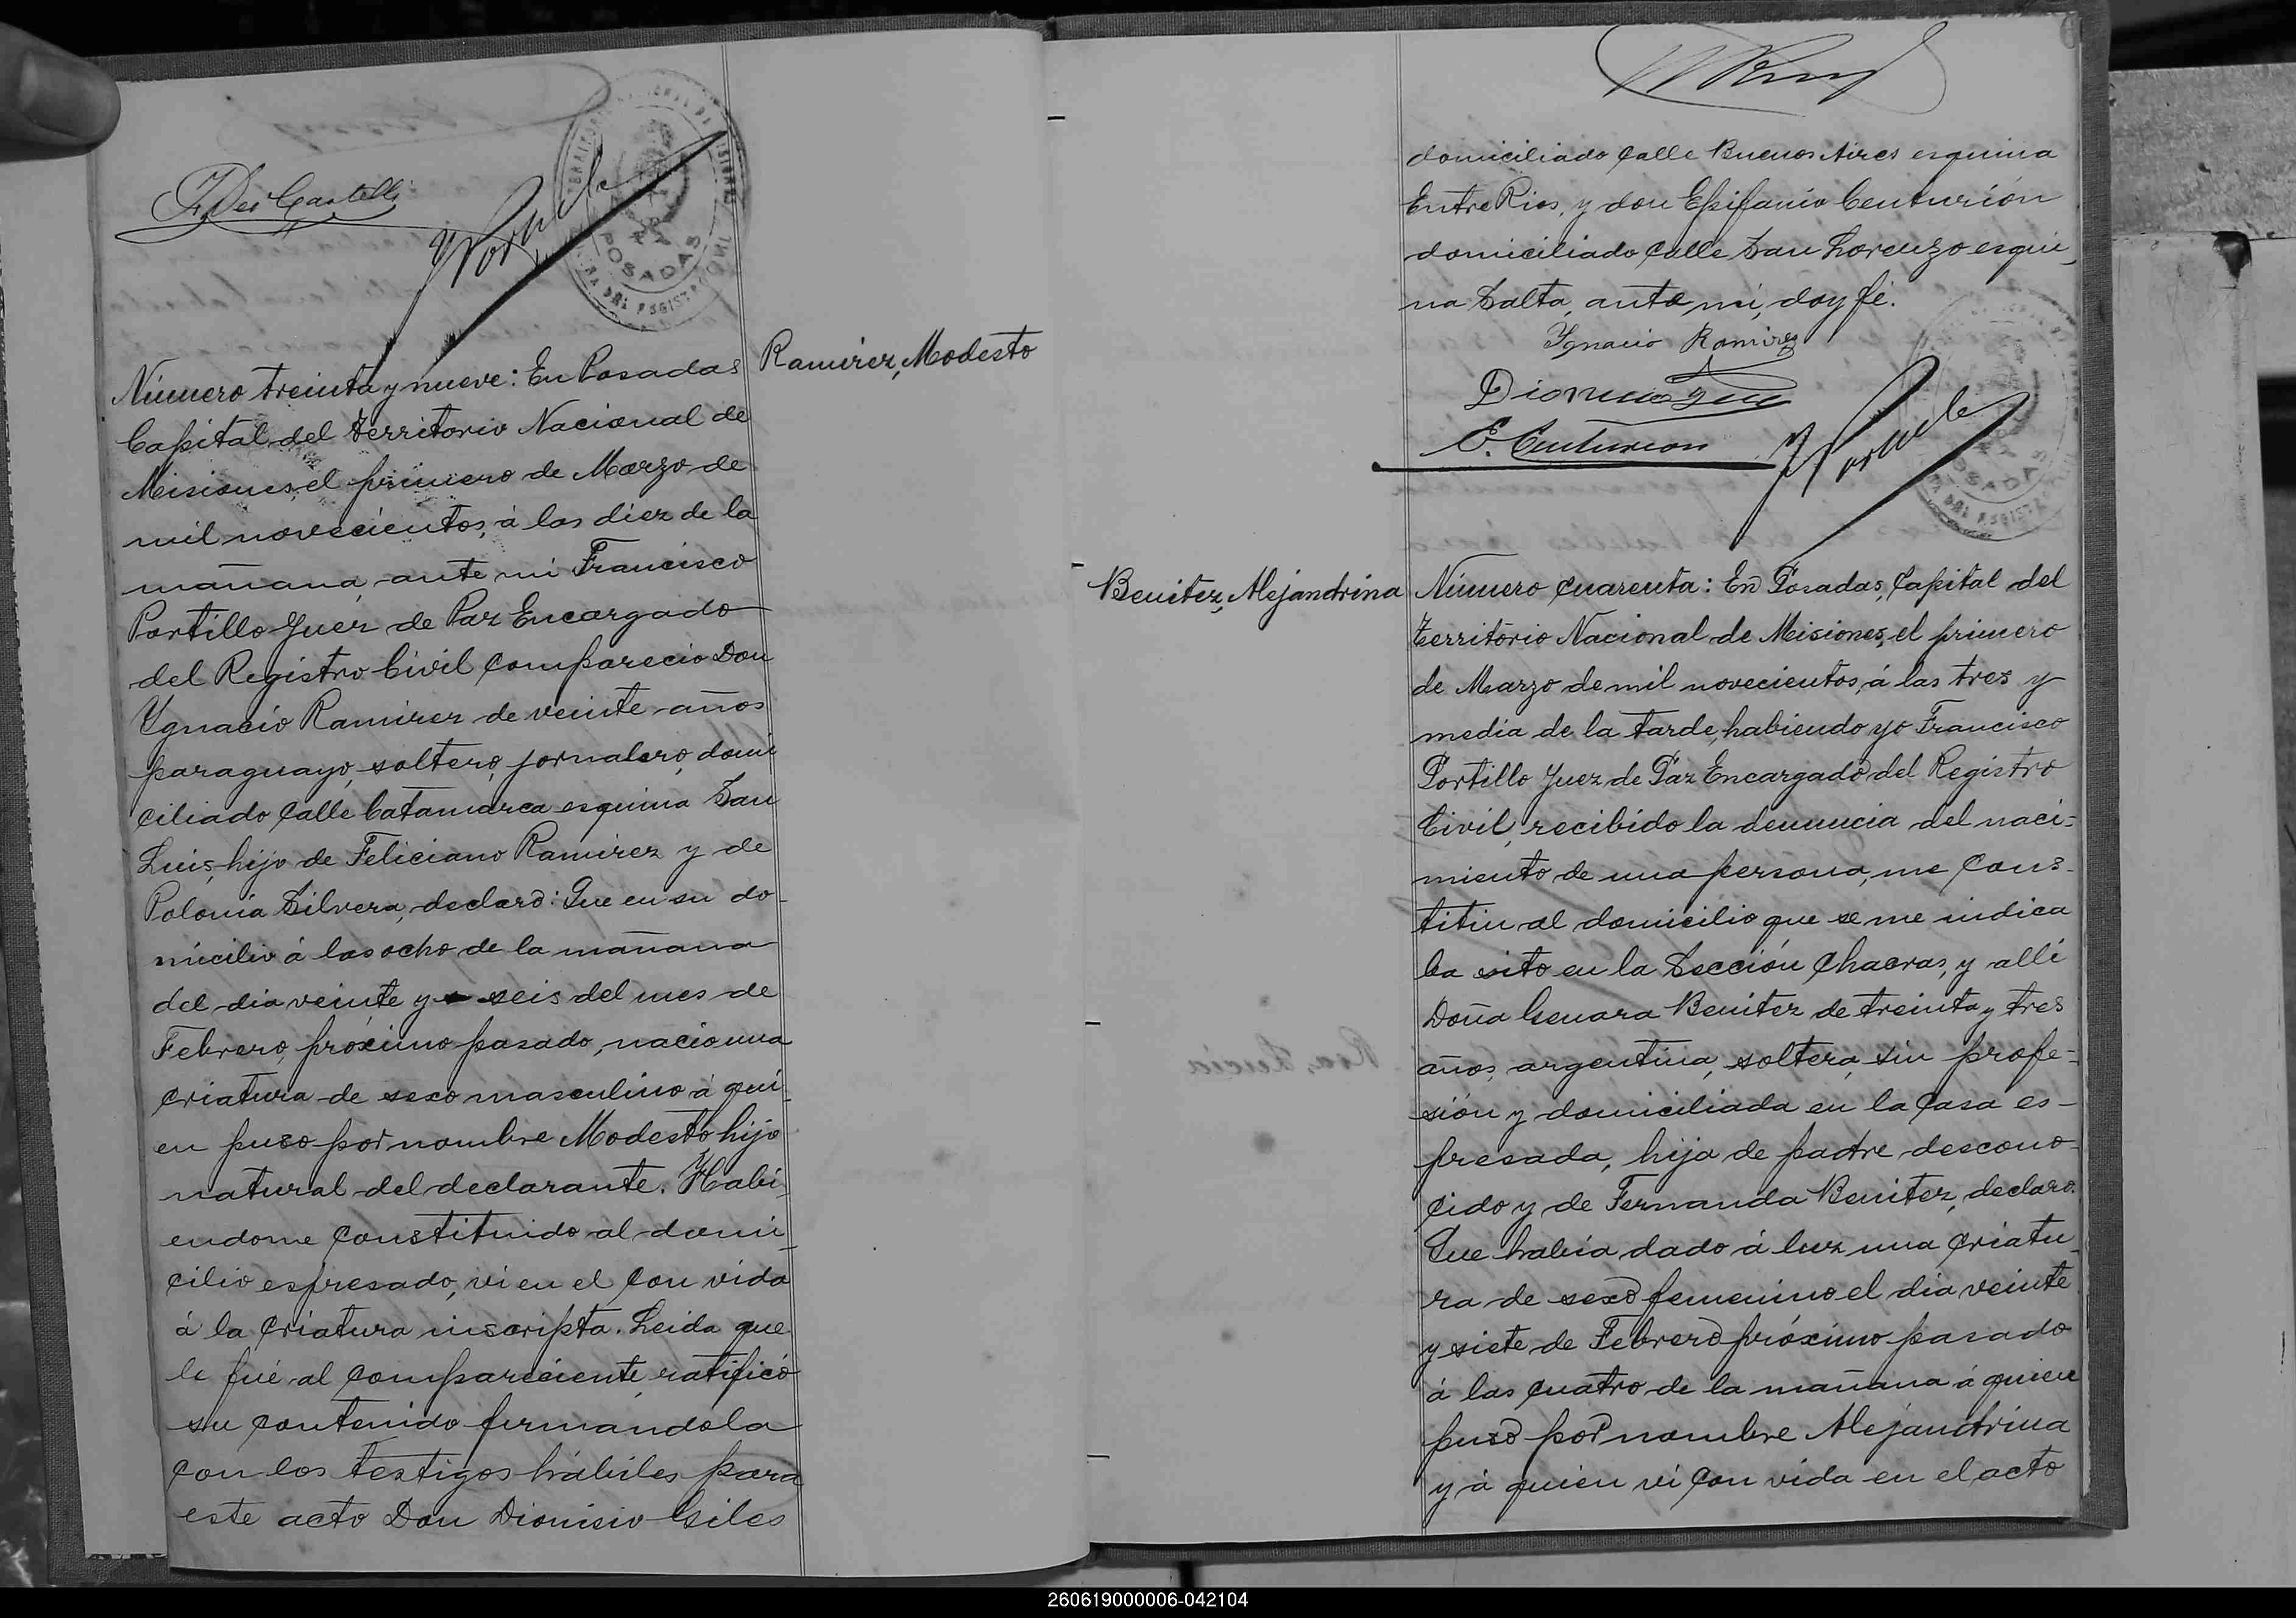 F. Dei Castelli
F Portillo
TERRITORIO NACIONAL DE MISIONES
POSADAS
Ramirez, Modesto
Número treinta y nueve: En Posadas
Capital del territorio Nacional de
Misiones, el primero de Marzo de
mil novecientos, á las diez de la
mañana, ante mi Francisco
Portillo Juez de Paz Encargado
del Registro Civil compareció Don
Ygnacio Ramirez de veinte años
paraguayo, soltero, jornalero, domi
ciliado calle Catamarca esquina San
Luis, hijo de Feliciano Ramirez y de
Polonia Silvera, declaró: Que en su do-
micilio á las ocho de la mañana
del dia veinte y seis del mes de
Febrero, próximo pasado, nació una
criatura de sexo masculino á qui-
en puso por nombre Modesto hijo
natural del declarante. Habi-
endome constituido al domi-
cilio espresado, vi en el con vida
á la criatura inscripta. Leida que
le fué al compareciente, ratificó
su contenido firmandola
con los testigos hábiles para
este acto Don Dionisio Giles
domiciliado calle Buenos Aires esquina
Entre Rios, y don Epifanio Centurión
domiciliado calle San Lorenzo esqui-
na Salta, ante mi, doy fé.
Ygnacio Ramirez
Dionisio Giles
E. Centurion
F Portillo
POSADAS
Benitez, Alejandrina
Número cuarenta: En Posadas, Capital del
territorio Nacional de Misiones, el primero
de Marzo de mil novecientos, á las tres y
media de la tarde, habiendo yo Francisco
Portillo Juez de Paz Encargado del Registro
Civil, recibido la denuncia del naci-
miento de una persona, me cons-
tituí al domicilio que se me indica
ba sito en la Sección Chacras, y allí
Doña Genara Benitez de treinta y tres
años, argentina, soltera, sin profe-
sión y domiciliada en la casa es-
presada, hija de padre descono-
cido y de Fernanda Benitez, declaro:
Que habia dado á luz una criatu-
ra de sexo femenino el dia veinte
y siete de Febrero próximo pasado
á las cuatro de la mañana á quien
puso por nombre Alejandrina
y á quien vi con vida en el acto
260619000006-042104